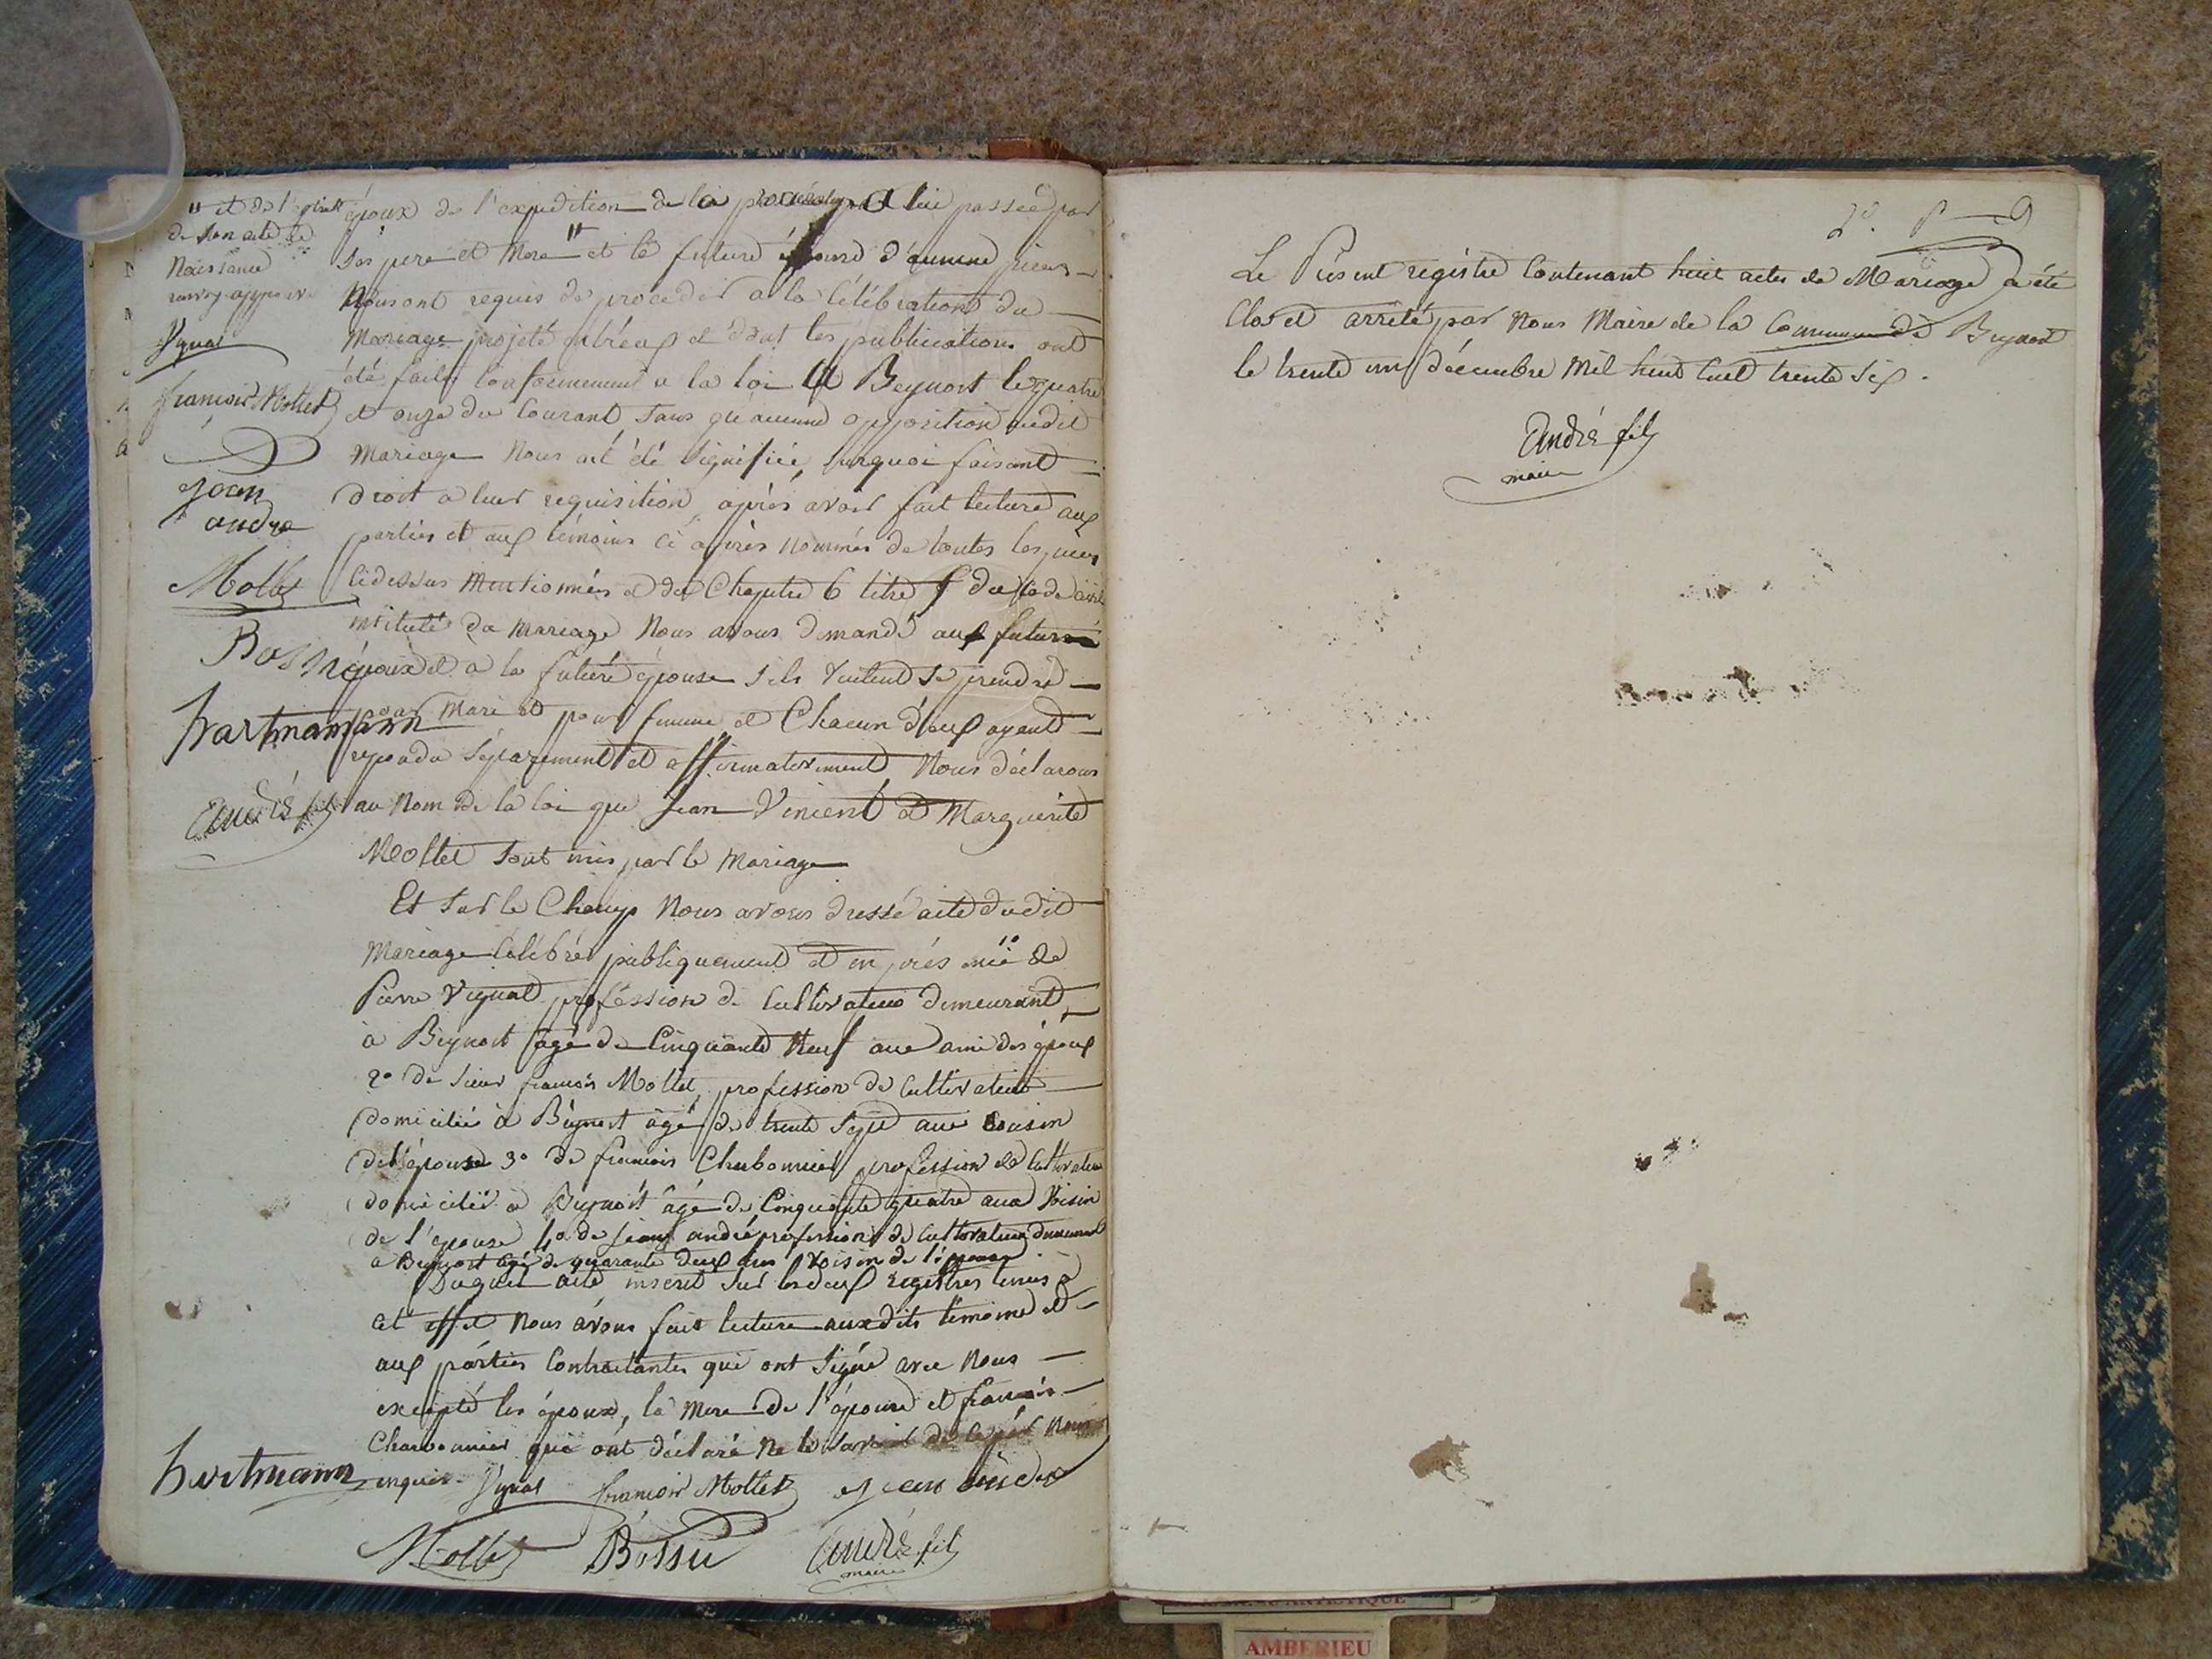 " et de l'extrait
de son acte de
Naissance
renvoy approuvé
Vynal
françois Mollet
jean
andre
Mollet
Bossu
hartmamann
André fils
époux de l'expedition de la procuration a lui passée par
ses pere et Mere " et la future épouse d'aucune pieces
Nous ont requis de proceder a la Célébration du
Mariage projeté entr'eux et dont les publications ont
été faites Conformement a la loi a Beynost les quatre
et onze du Courant, sans qu'aucune opposition audit
Mariage Nous ait été signifiée, surquoi faisant
droit a leur requisition, après avoir fait lecture aux
parties et aux témoins ci après nommés de toutes les pièces
cidessus Mentionnées et du Chapitre 6 titre 5 du Code civil
intitulé du Mariage Nous avons demandé aux futurs
époux et à la future épouse s'ils veulent se prendre
pour Mari et pour femme et Chacun d'eux ayant
repondu séparement et affirmativement Nous déclarons
au Nom de la loi que Jean Vincent et Marguerite
Mollet sont unis par le Mariage
Et sur le Champ Nous avons dressé acte dudit
Mariage Célébré publiquement et en présence 1º de
Pierre Vignat profession de Cultivateur demeurant
à Beynost agé de Cinquante Neuf ans ami des époux
2º de sieur françois Mollet, profession de Cultivateur
domicilié à Beynost âgé de trente sept ans Cousin
de l'épouse 3º de francois Charbonnier profession de Cultivateur
domicilié a Beynost âgé de Cinquante quatre ans Voisin
de l'épouse 4º de Jean andré profession de Cultivateur demeurant
a Beynost agé de quarante deux ans Voisin de l'épouse
Duquel acte inscrit sur les deux registres tenus a
cet effet Nous avons fait lecture auxdits témoins et
aux parties Contractantes qui ont signé avec Nous
excepté les époux, la Mere de l'épouse et francois
Charbonnier qui ont déclaré Ne le savoir de ce par Nous
enquis. Vynal françois Mollet jean andre
hartmann
Mollet Bossu André fils
maire
Le Présent registre Contenant huit actes de Mariage a été
Clos et arrêté par Nous Maire de la Commune de Beynost
le trente un décembre Mil huit Cent trente six.
André fils
maire
AMBERIEU